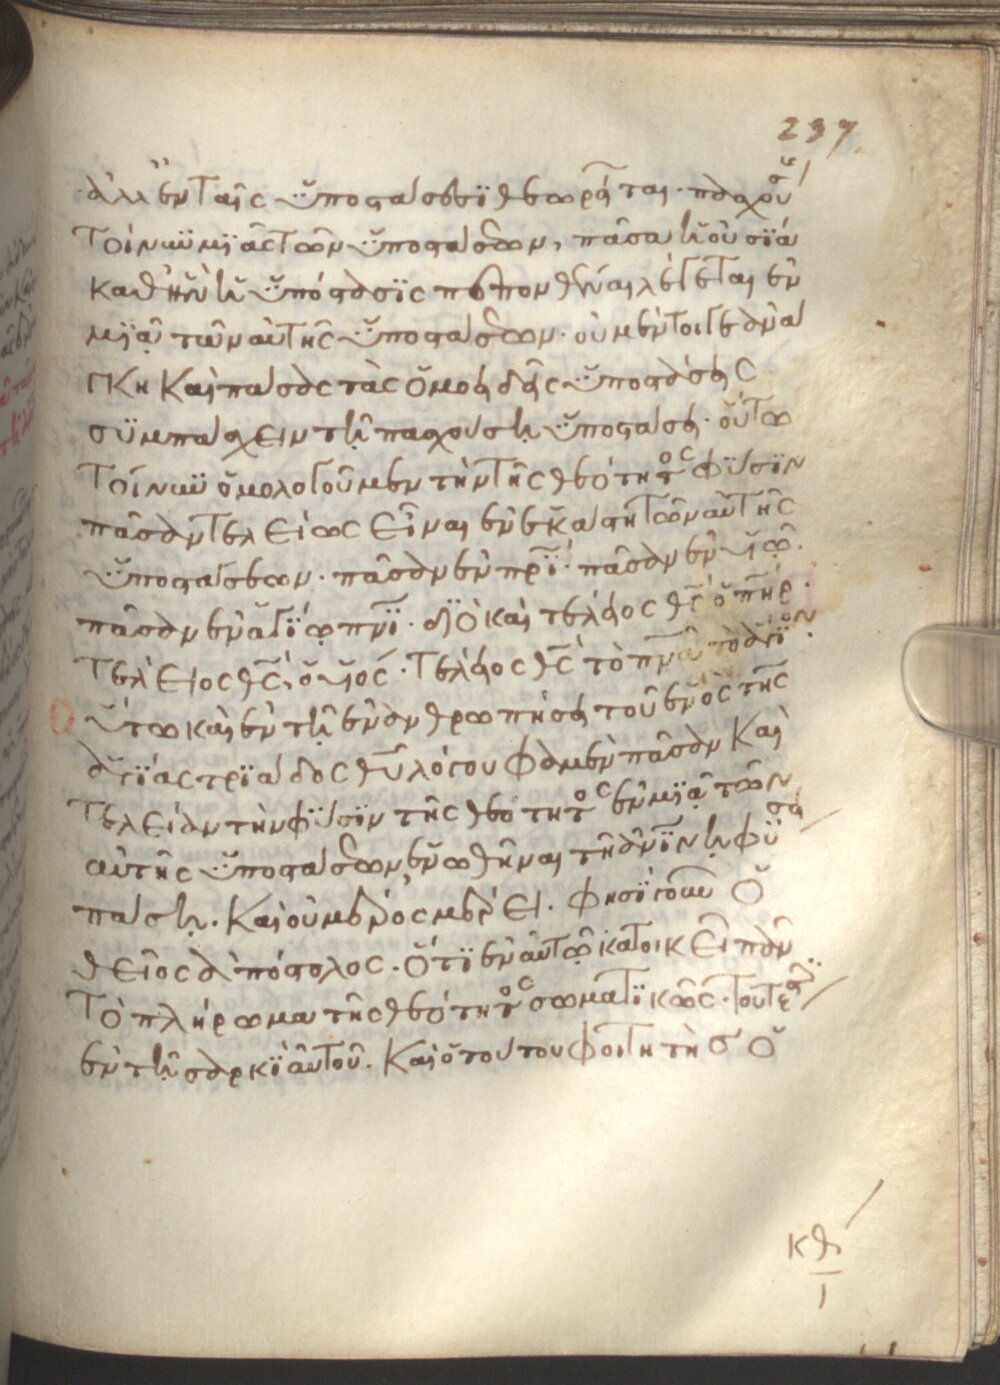 237
ἀλλ' ἐν ταῖς ὑποστάσεσι θεωρεῖται. παχούσης
τοίνυν μιᾶς τῶν ὑποστάσεων, πᾶσα ἡ οὐσία
καθ' ἣν ἡ ὑπόστασις πεπονθέναι λέγεται ἐν
μιᾷ τῶν αὐτῆς ὑποστάσεων. οὐ μέντοιγε ἀνά
γκη καὶ πάσας τὰς ὁμοειδεῖς ὑποστάσεις
συμπάσχειν τῇ παχούσῃ ὑποστάσει. οὕτω
τοίνυν ὁμολογοῦμεν τὴν τῆς θεότητος φύσιν
πᾶσαν τελείως εἶναι ἐν ἑκάστῃ τῶν αὐτῆς
ὑποστάσεων. πᾶσαν ἐν πρι. πᾶσαν ἐν υἱῷ.
πᾶσαν ἐν ἁγίῳ πνι. διὸ καὶ τέλειος θς ὁ πηρ.
τέλειος θς, ὁ υἱός. τέλειος θς τὸ πνα τὸ θεῖον.
ὕτω καὶ ἐν τῇ ἐνανθρωπήσει τοῦ ἑνὸς τῆς
ἁγίας τριάδος θυ λόγου φαμὲν πᾶσαν καὶ
τελείαν τὴν φύσιν τῆς θεότητος ἐν μιᾷ τῶν
αὐτῆς ὑποστάσεων, ἑνωθῆναι τῇ ἀνινῃ φύσει
πάσῃ. καὶ οὐ μέρος μέρει. φησὶ γοῦν ὁ
θεῖος ἀπόστολος. ὅτι ἐν αὐτῷ κατοικεῖ πᾶν
τὸ πλήρωμα τῆς θεότητος σωματικῶς. τουτέστιν
ἐν τῇ σαρκὶ αὐτοῦ. καὶ ὁ τούτου φοιτητὴς ὁ
κθ